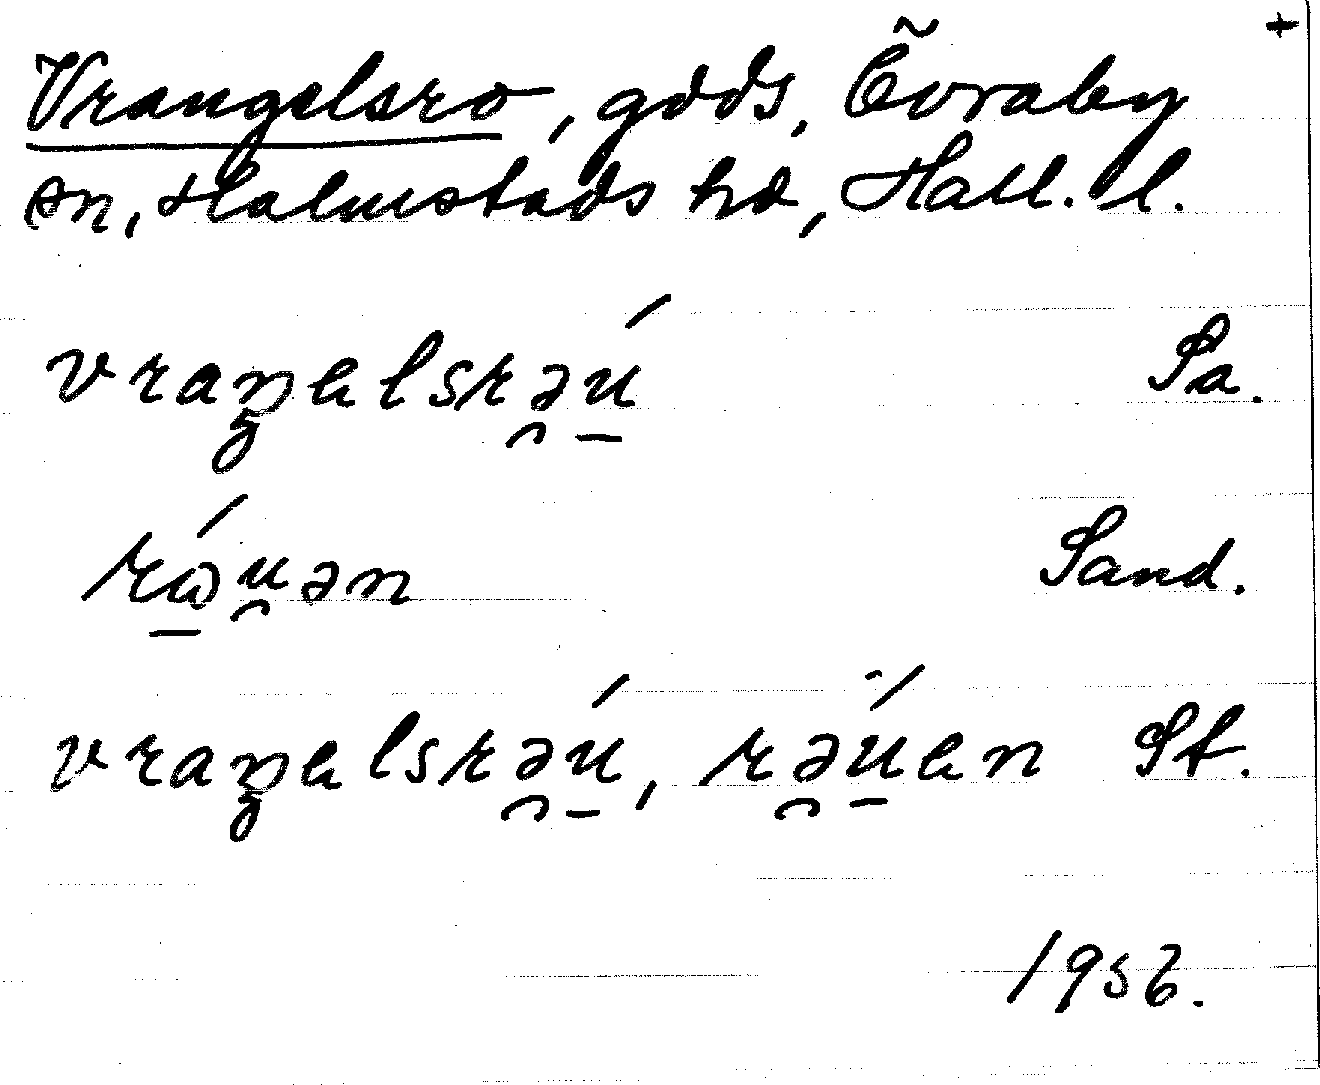 +
Vrangelsro, gods, Övraby
sn, Halmstads hd, Hall. l.
vraŋəlsrə̯ú̱ Sa.
rɷ̱́u̯ən Sand.
vraŋəlsrə̯ú̱, rə̯ú̱en St.
1956.